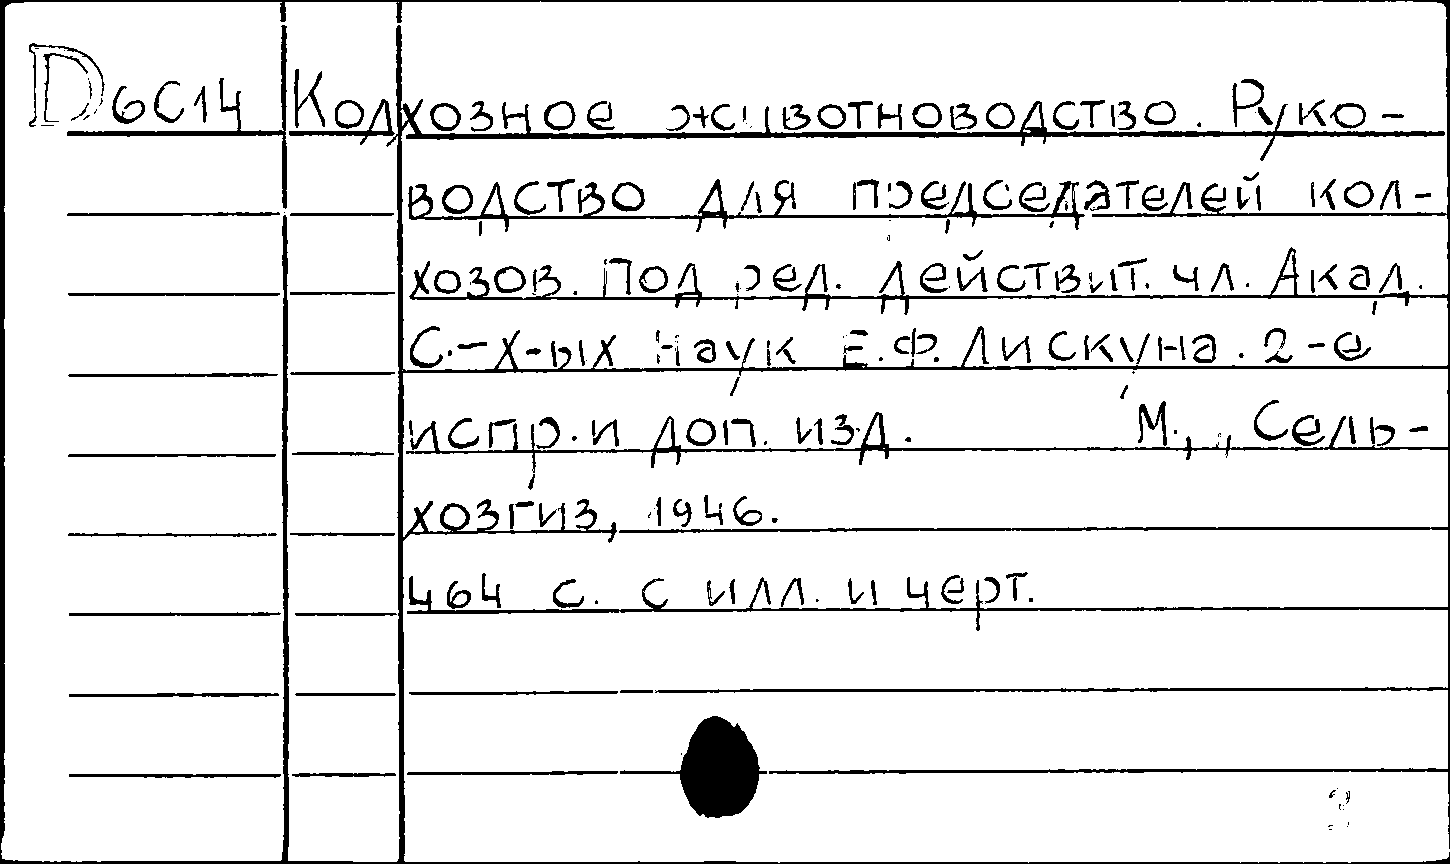 D6С14 Колхозное животноводство. Руко-
водство для председателей кол-
хозов. Под ред. действит. чл. Акад.
С.-х-ых Наук Е.Ф. Лискуна. 2-е
испр. и доп. изд. М., „Сель-
хозгиз, 1946.
464 с. с илл. и черт.